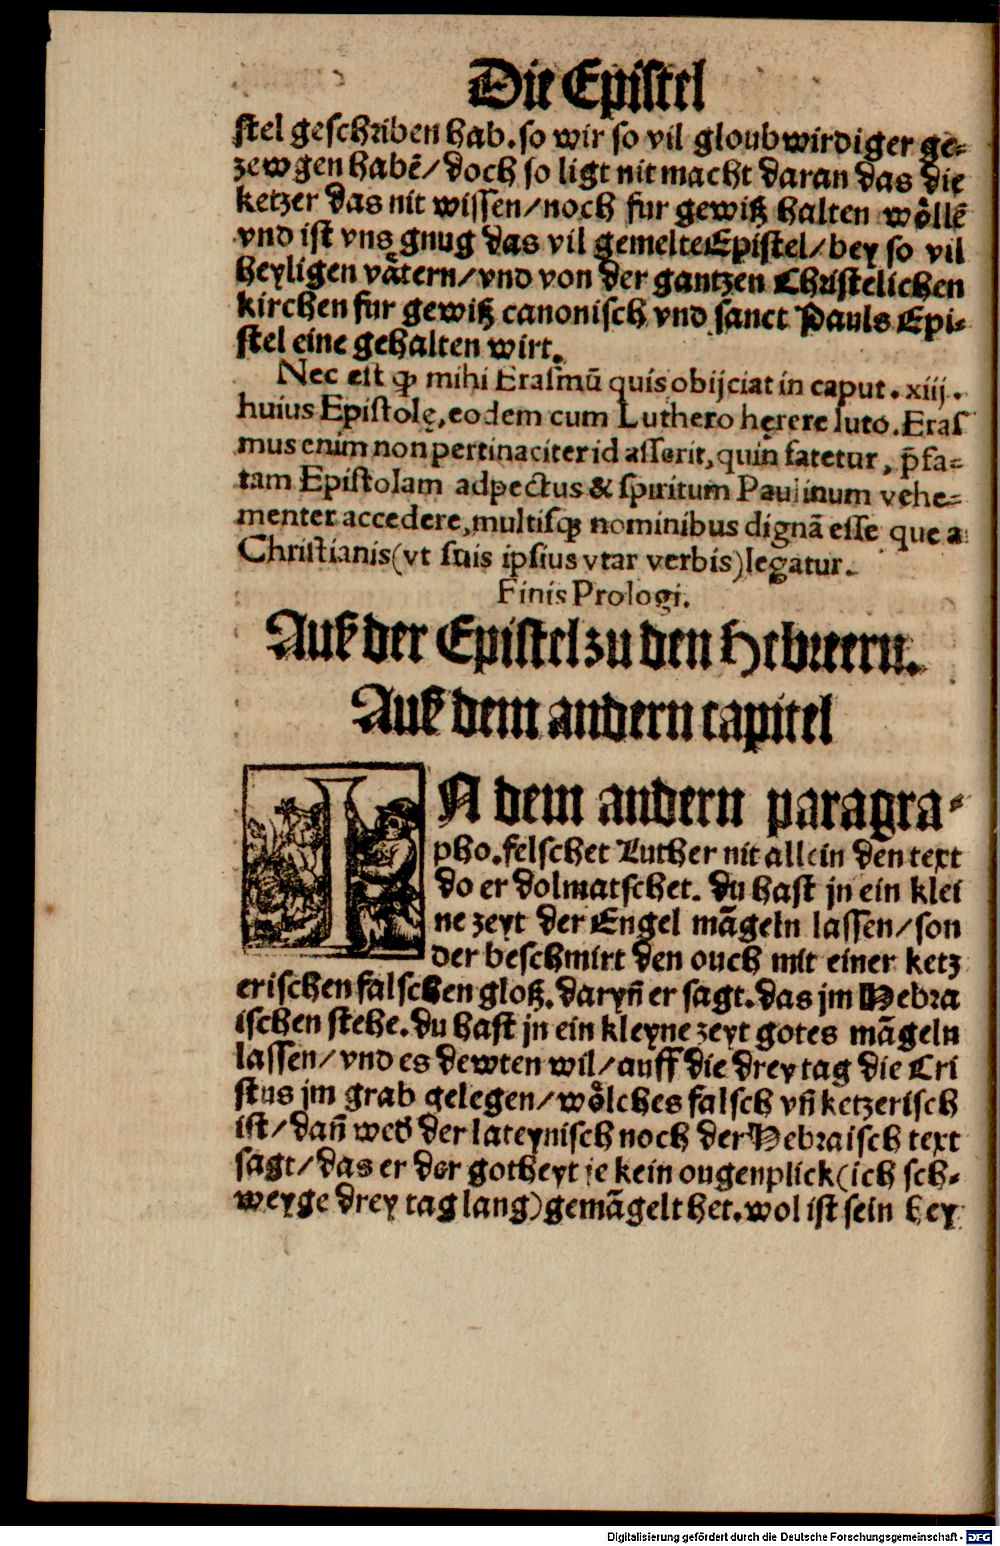 Die Epistel
stel geschriben hab. so wir so vil gloubwirdiger ge-
zewgen habē/ doch so ligt nit macht daran das die
ketzer das nit wissen/ noch fur gewiß halten woͤllē
vnd ist vns gnug das vil gemelte Epistel/ bey so vil
heyligen vaͤtern/ vnd von der gantzen Christelichen
kirchen fur gewiß canonisch vnd sanct Pauls Epi-
stel eine gehalten wirt.
Nec est ꝙ mihi Erasmū quis obijciat in caput. xiij.
huius Epistolę, eodem cum Luthero hęrere luto. Eras
mus enim non pertinaciter id asserit, quin fatetur, p̄fa-
tam Epistolam ad pectus & spiritum Paulinum vehe-
menter accedere, multisqꝫ nominibus dignā esse que a
Christianis (vt suis ipsius vtar verbis) legatur.
Finis Prologi.
Auß der Epistel zu den Hebreern.
Auß dem andern capitel
IN dem andern paragra-
pho. felschet Luther nit allein den text
do er dolmatschet. du hast jn ein klei
ne zeyt der Engel maͤgeln lassen/ son
der beschmirt den ouch mit einer ketz
erischen falschen gloß. daryñ er sagt. das jm Hebra
ischen stehe. du hast jn ein kleyne zeyt gotes maͤgeln
lassen/ vnd es dewten wil/ auff die drey tag die Cri
stus jm grab gelegen/ woͤlches falsch vñ ketzerisch
ist/ dañ wed der lateynisch noch der Hebraisch text
sagt/ das er der gotheyt je kein ougenplick (ich sch-
weyge drey tag lang) gemaͤgelt het. wol ist sein bey
Digitalisierung gefördert durch die Deutsche Forschungsgemeinschaft - DFG